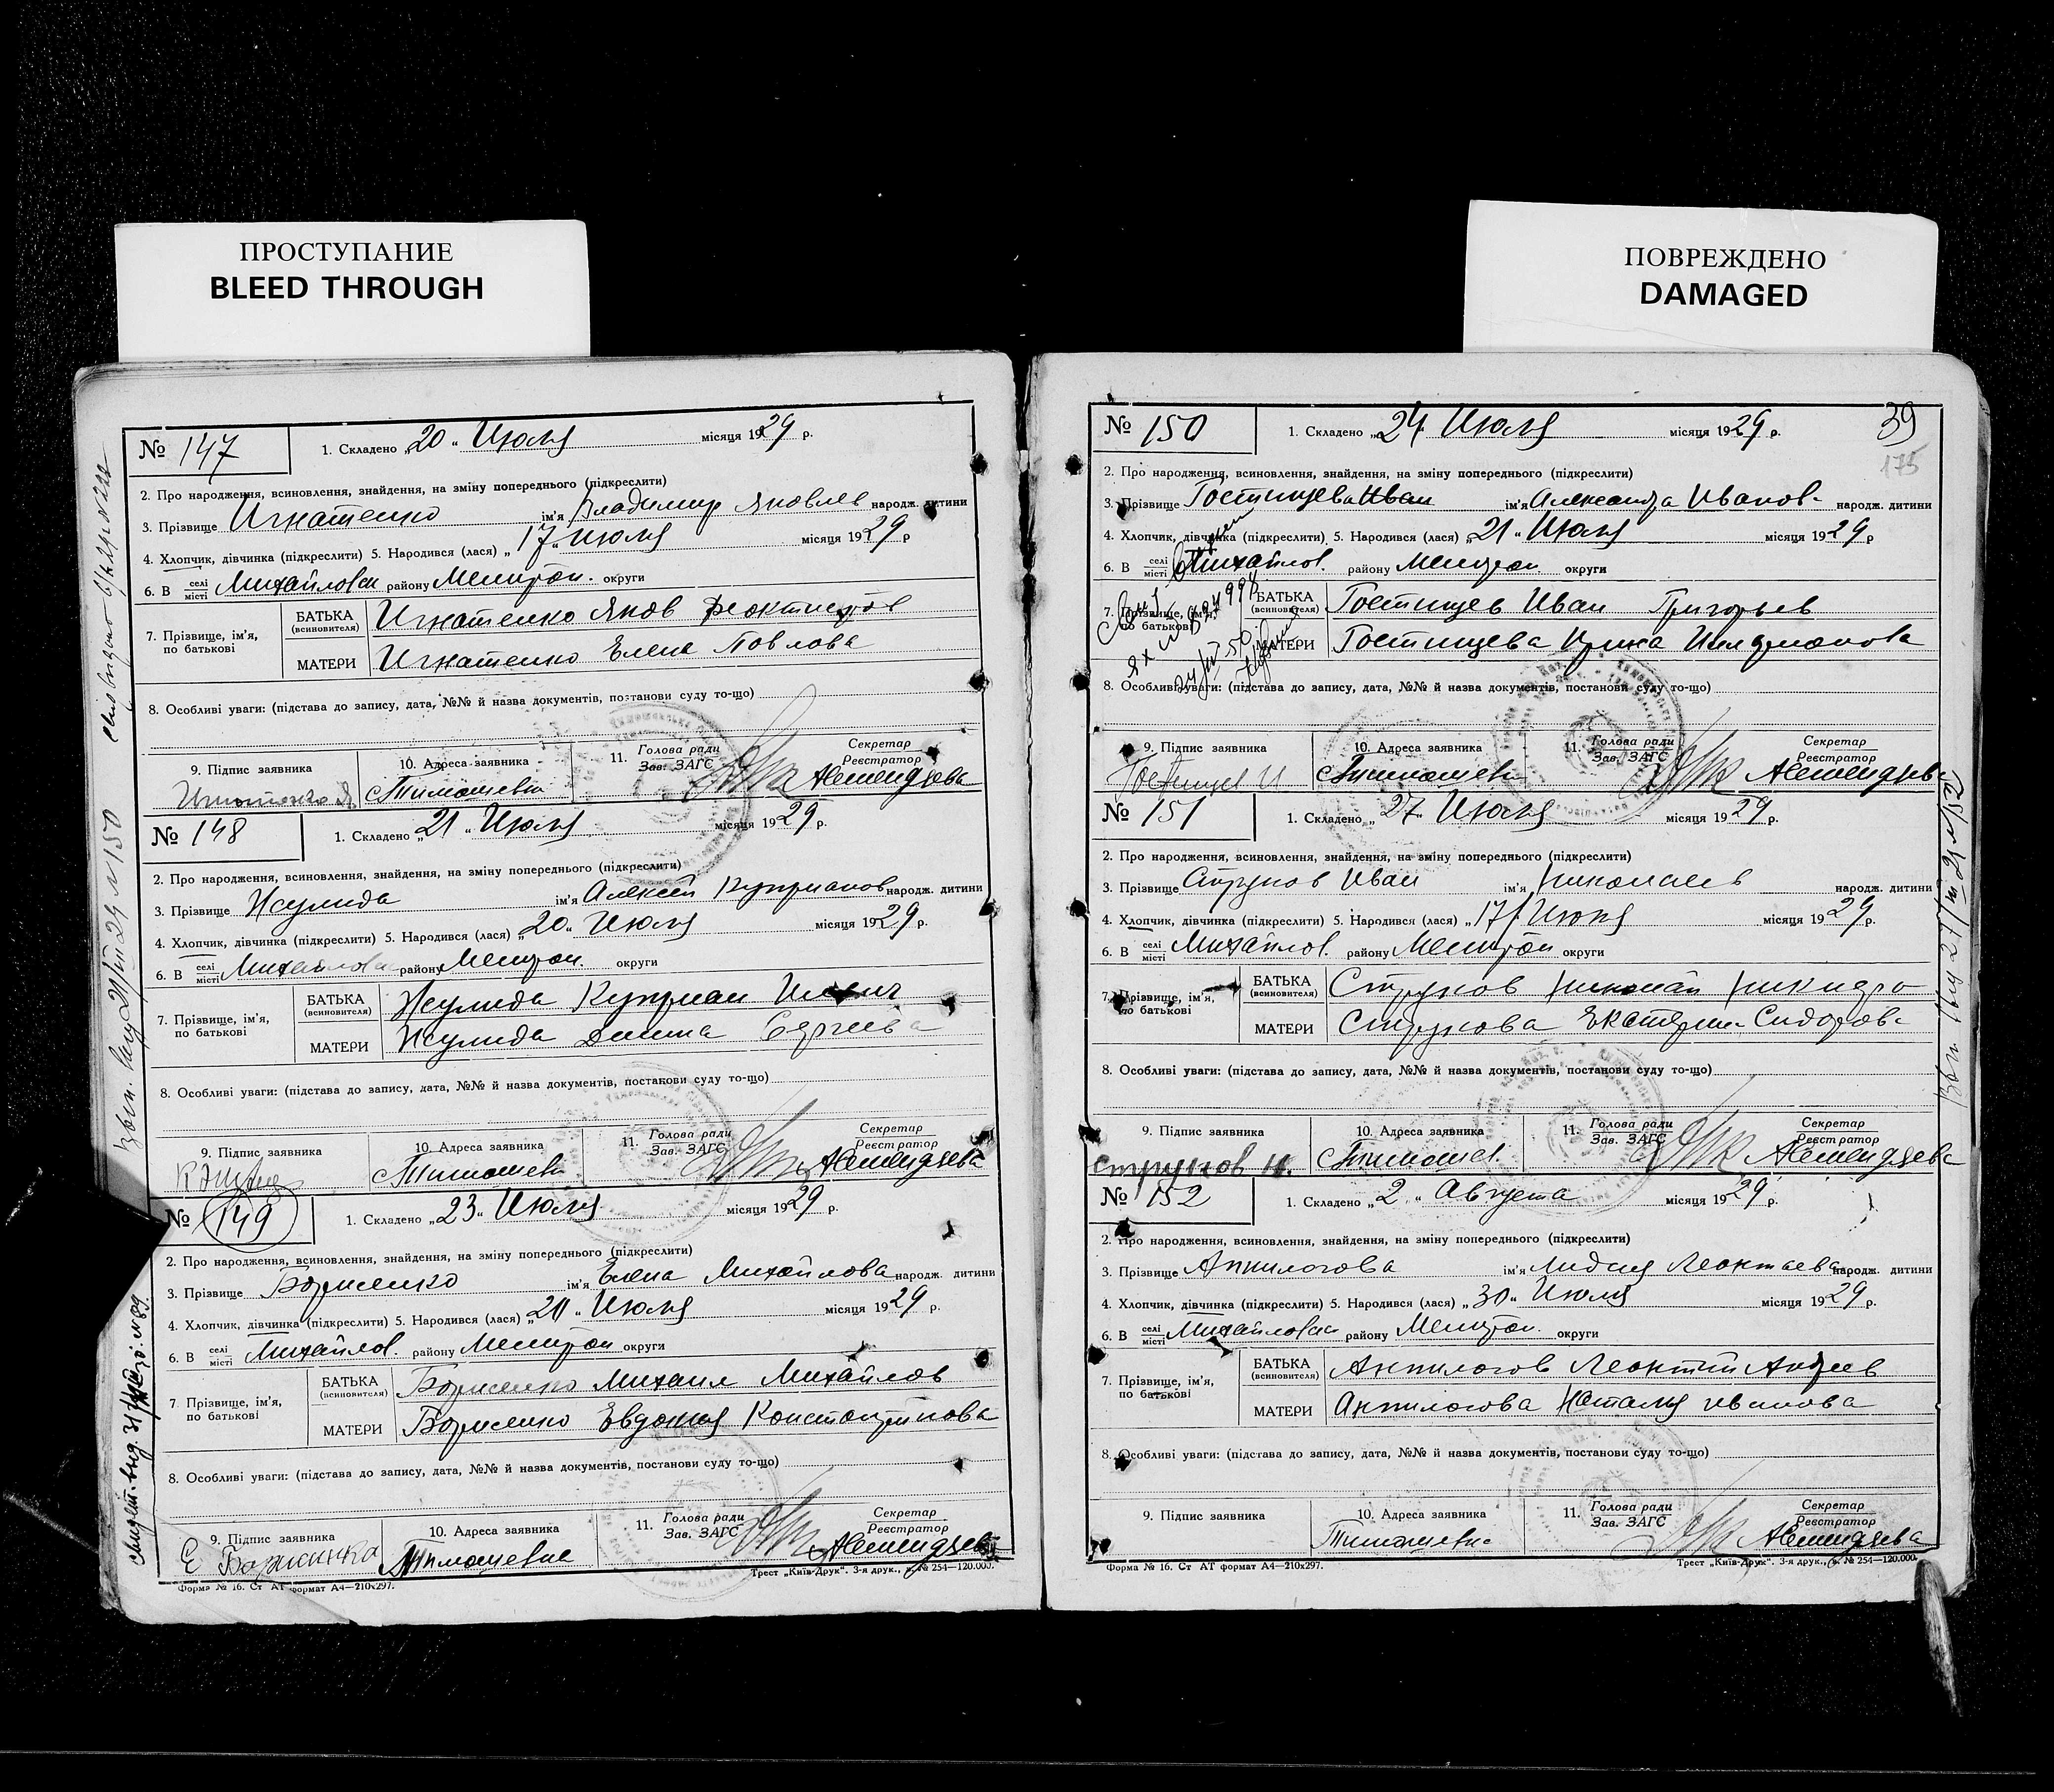 ПРОСТУПАНИЕ
BLEED THROUGH
ПОВРЕЖДЕНО
DAMAGED
№ 147 1. Складено „20“ Июля місяця 1929 р.
2. Про народження, всиновлення, знайдення, на зміну попереднього (підкреслити)
3. Прізвище Игнатенко ім'я Владимир Яковлев народж. дитини
4. Хлопчик, дівчинка (підкреслити) 5. Народився (лася) „17“ Июля місяця 1929 р
6. В селі місті Михайловки району Мелитоп. округи
7. Прізвище, ім'я, по батькові
БАТЬКА (всиновителя) Игнатенко Яков
МАТЕРИ Игнатенко Елена Павлова
8. Особливі уваги: (підстава до запису, дата, №№ й назва документів, постанови суду то-що)
9. Підпис заявника 10. Адреса заявника 11. Голова ради Зав. ЗАГС Секретар Реєстратор
Игнатенко Я Тимошевка
№ 148 1. Складено „21“ Июля місяця 1929 р.
2. Про народження, всиновлення, знайдення, на зміну попереднього (підкреслити)
3. Прізвище Жулида ім'я Алексей Куприанов народж. дитини
4. Хлопчик, дівчинка (підкреслити) 5. Народився (лася) „20“ Июля місяця 1929 р.
6. В селі місті Михайловка району Мелитоп. округи
7. Прізвище, ім'я, по батькові
БАТЬКА (всиновителя) Жулида Куприан
МАТЕРИ Жулида Сергеева
8. Особливі уваги: (підстава до запису, дата, №№ й назва документів, постанови суду то-що)
9. Підпис заявника 10. Адреса заявника 11. Голова ради Зав. ЗАГС Секретар Реєстратор
Тимошевк
№ 149 1. Складено „23“ Июля місяця 1929 р.
2. Про народження, всиновлення, знайдення, на зміну попереднього (підкреслити)
3. Прізвище Борисенко ім'я Елена Михайлова народж. дитини
4. Хлопчик, дівчинка (підкреслити) 5. Народився (лася) „20“ Июля місяця 1929 р.
6. В селі місті Михайлов. району Мелитоп округи
7. Прізвище, ім'я, по батькові
БАТЬКА (всиновителя) Борисенко Михаил Михайлов
МАТЕРИ Борисенко Евдокия Константинова
8. Особливі уваги: (підстава до запису, дата, №№ й назва документів, постанови суду то-що)
9. Підпис заявника 10. Адреса заявника 11. Голова ради Зав. ЗАГС Секретар Реєстратор
Е Тимошевке
Форма № 16. Ст АТ формат А4—210х297. Трест „Київ-Друк“. 3-я друк., з. № 254—120.000.
№ 150 1. Складено „24“ Июля місяця 1929 р. 39
175
2. Про народження, всиновлення, знайдення, на зміну попереднього (підкреслити)
3. Прізвище Гостищева Иван ім'я Александра Иванов- народж. дитини
4. Хлопчик, дівчинка (підкреслити) 5. Народився (лася) „21“ Июля місяця 1929 р
6. В селі місті Михайлов. району Мелитоп. округи
7. Прізвище, ім'я, по батькові
БАТЬКА (всиновителя) Гостищев Иван Григорьев
МАТЕРИ Гостищева Ирина
8. Особливі уваги: (підстава до запису, дата, №№ й назва документів, постанови суду то-що)
9. Підпис заявника 10. Адреса заявника 11. Голова ради Зав. ЗАГС Секретар Реєстратор
Гостищев И Тимошевк
№ 151 1. Складено „27“ Июля місяця 1929 р.
2. Про народження, всиновлення, знайдення, на зміну попереднього (підкреслити)
3. Прізвище Струков Иван ім'я Николаев народж. дитини
4. Хлопчик, дівчинка (підкреслити) 5. Народився (лася) „17“ Июля місяця 1929 р.
6. В селі місті Михайлов. району Мелитоп округи
7. Прізвище, ім'я, по батькові
БАТЬКА (всиновителя) Струков Николай
МАТЕРИ Струкова Екатерин Сидоров-
8. Особливі уваги: (підстава до запису, дата, №№ й назва документів, постанови суду то-що)
9. Підпис заявника 10. Адреса заявника 11. Голова ради Зав. ЗАГС Секретар Реєстратор
Струков Н. Тимошев.
№ 152 1. Складено „2“ Августа місяця 1929 р.
2. Про народження, всиновлення, знайдення, на зміну попереднього (підкреслити)
3. Прізвище Анпилогова ім'я Лидия Леонтьева народж. дитини
4. Хлопчик, дівчинка (підкреслити) 5. Народився (лася) „30“ Июля місяця 1929 р.
6. В селі місті Михайловки району Мелитоп. округи
7. Прізвище, ім'я, по батькові
БАТЬКА (всиновителя) Анпилогов Леонтий Андреев
МАТЕРИ Анпилогова Наталия Иванова
8. Особливі уваги: (підстава до запису, дата, №№ й назва документів, постанови суду то-що)
9. Підпис заявника 10. Адреса заявника 11. Голова ради Зав. ЗАГС Секретар Реєстратор
Тимошевк-
Форма № 16. Ст АТ формат А4—210х297. Трест „Київ-Друк“. 3-я друк., з. № 254—120.000.